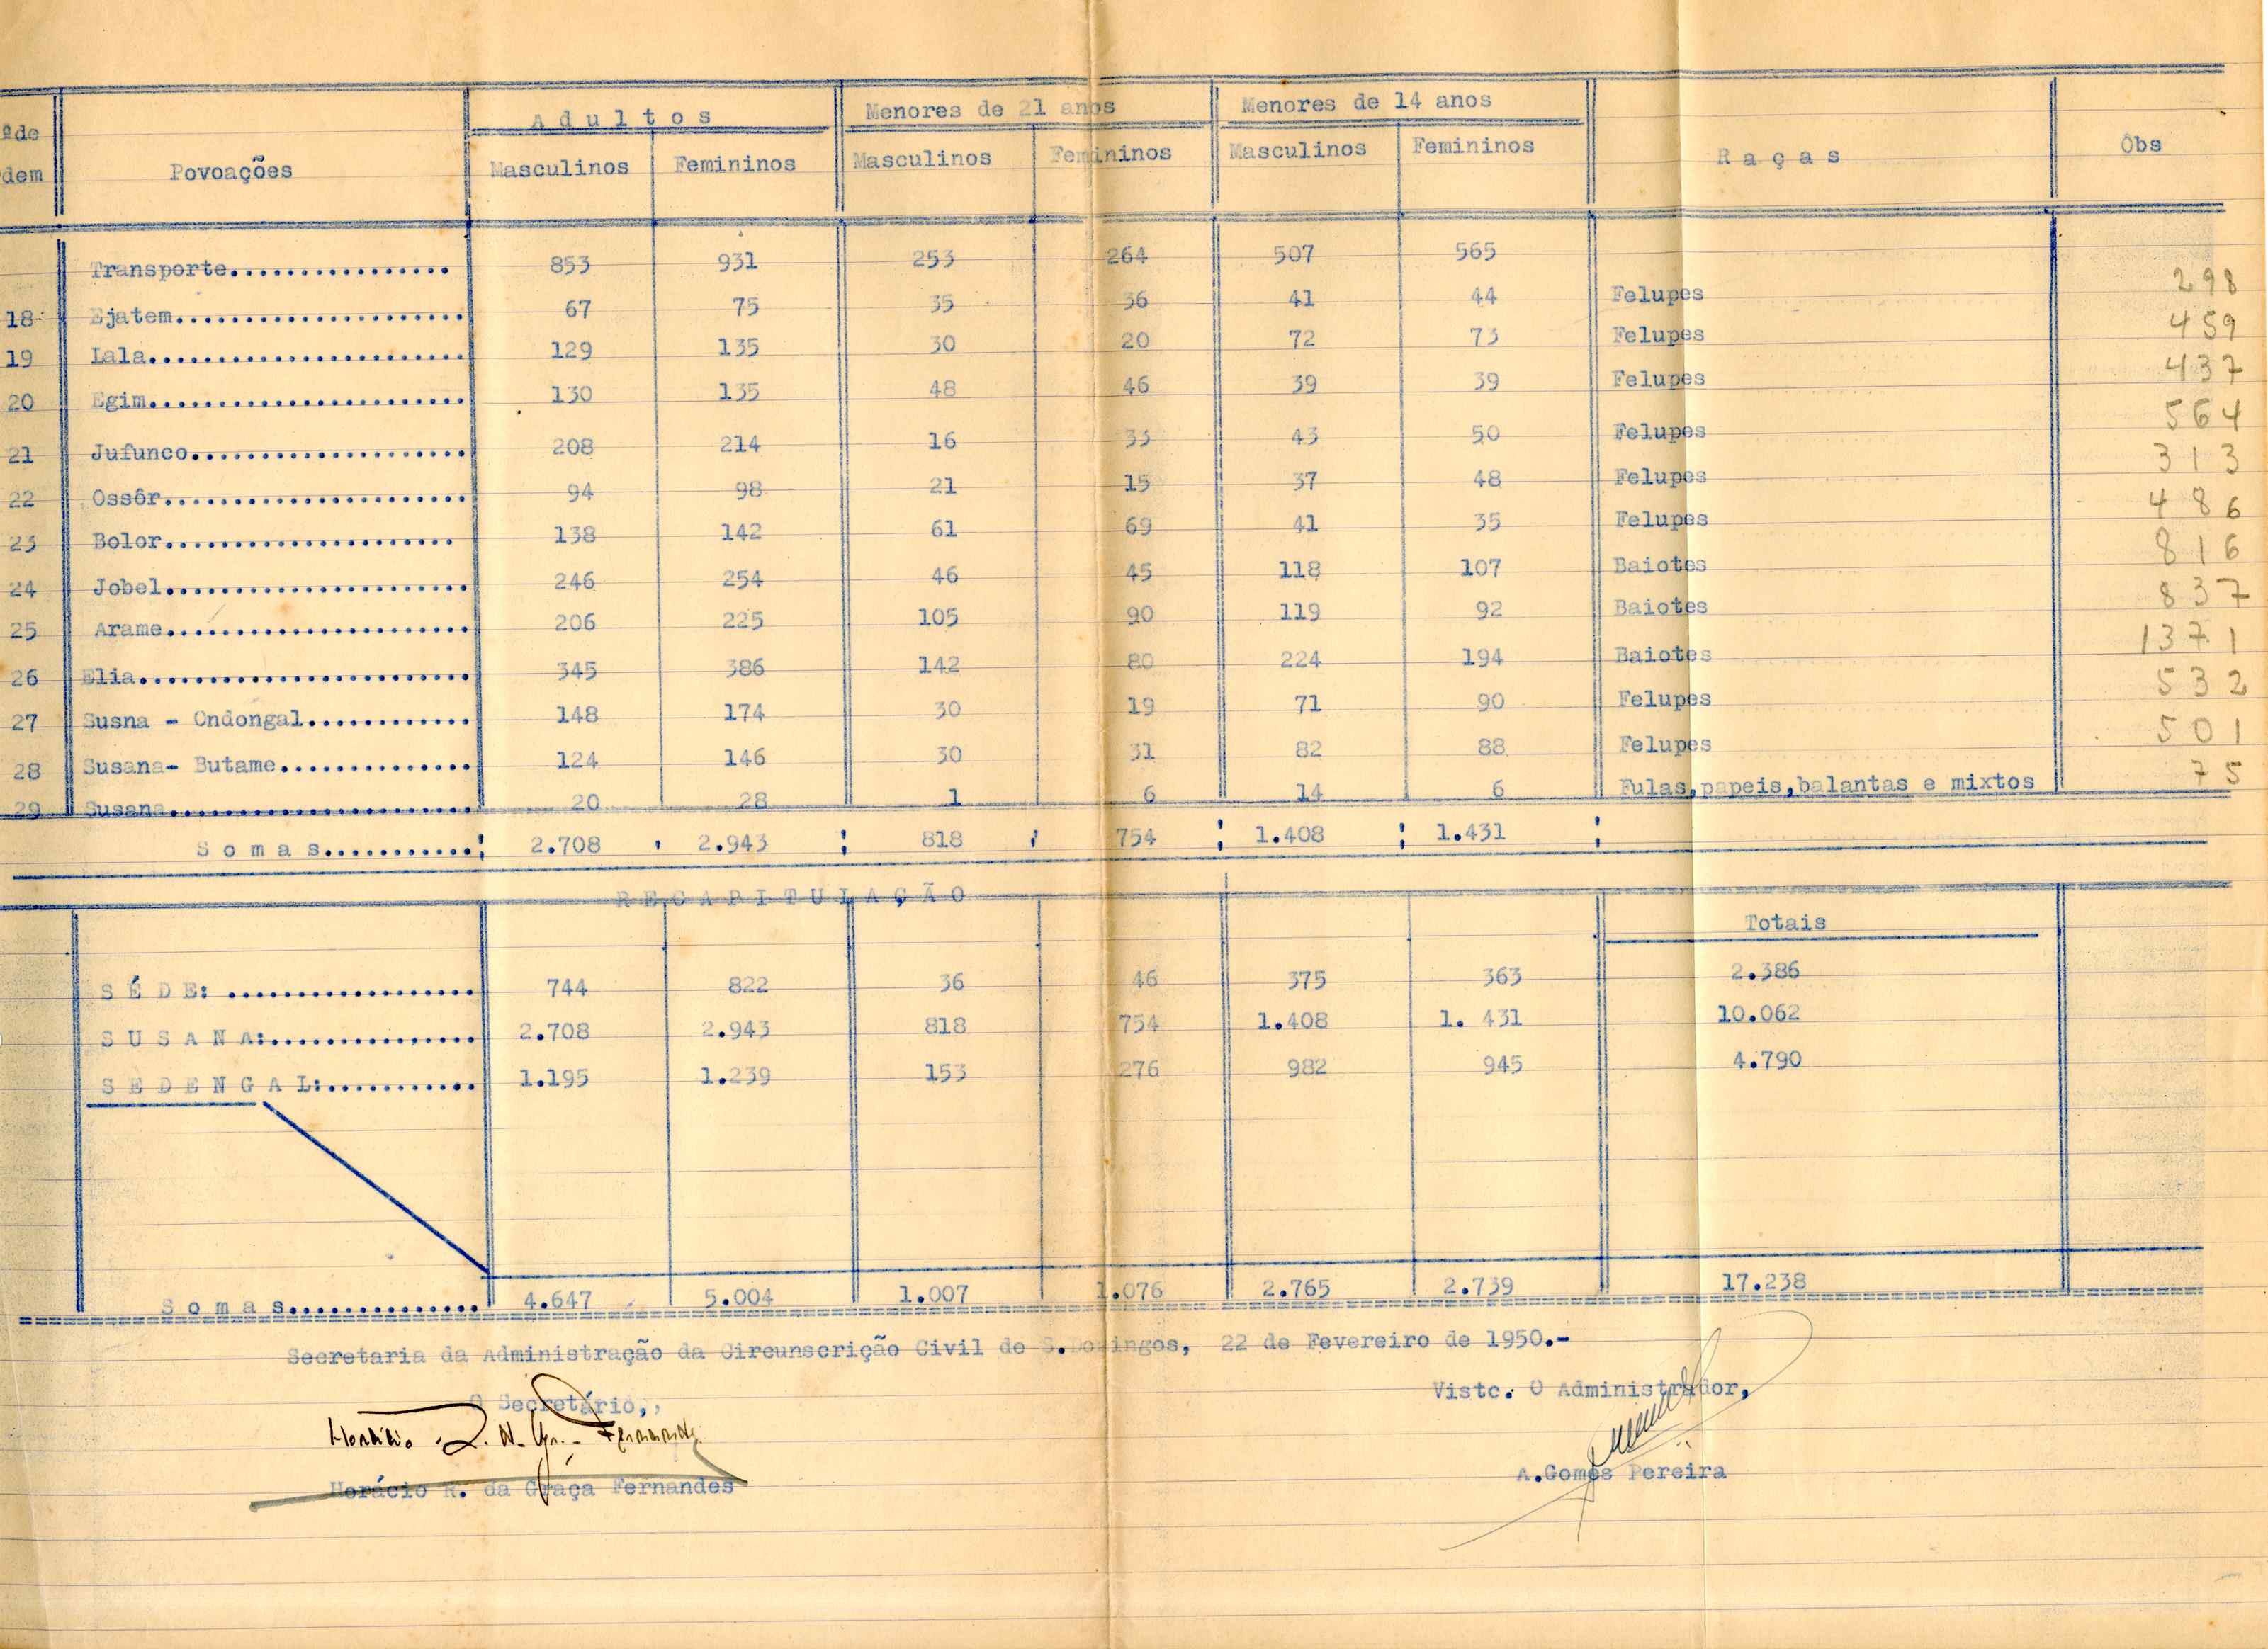 Adultos Menores de 21 anos Menores de 14 anos
ªde
dem Povoações Masculinos Femininos Masculinos Femininos Masculinos Femininos Raças Obs
Transporte................ 853 931 253 264 507 565
18 Ejatem..................... 67 75 35 36 41 44 Felupes 298
19 Lala....................... 129 135 30 20 72 73 Felupes 459
20 Egim....................... 130 135 48 46 39 39 Felupes 437
21 Jufunco.................... 208 214 16 33 43 50 Felupes 564
22 Ossôr...................... 94 98 21 15 37 48 Felupes 313
23 Bolor..................... 138 142 61 69 41 35 Felupes 486
24 Jobel...................... 246 254 46 45 118 107 Baiotes 816
25 Arame...................... 206 225 105 90 119 92 Baiotes 837
26 Elia........................ 345 386 142 80 224 194 Baiotes 1371
27 Susna - Ondongal............ 148 174 30 19 71 90 Felupes 532
28 Susana- Butame.............. 124 146 30 31 82 88 Felupes 501
29 Susana...................... 20 28 1 6 14 6 Fulas,papeis,balantas e mixtos 75
Somas........... 2.708 2.943 818 754 1.408 1.431
RECAPITULAÇÃO
Totais
SÉDE: .................. 744 822 36 46 375 363 2.386
SUSANA:............... 2.708 2.943 818 754 1.408 1. 431 10.062
SEDENGAL:........... 1.195 1.239 153 276 982 945 4.790
Somas.............. 4.647 5.004 1.007 1.076 2.765 2.739 17.238
Secretaria da Administração da Circunscrição Civil de S.Domingos, 22 de Fevereiro de 1950.-
O Secretário,, Visto. O Administrador,
Horácio R. da Graça Fernandes A.Gomes Pereira